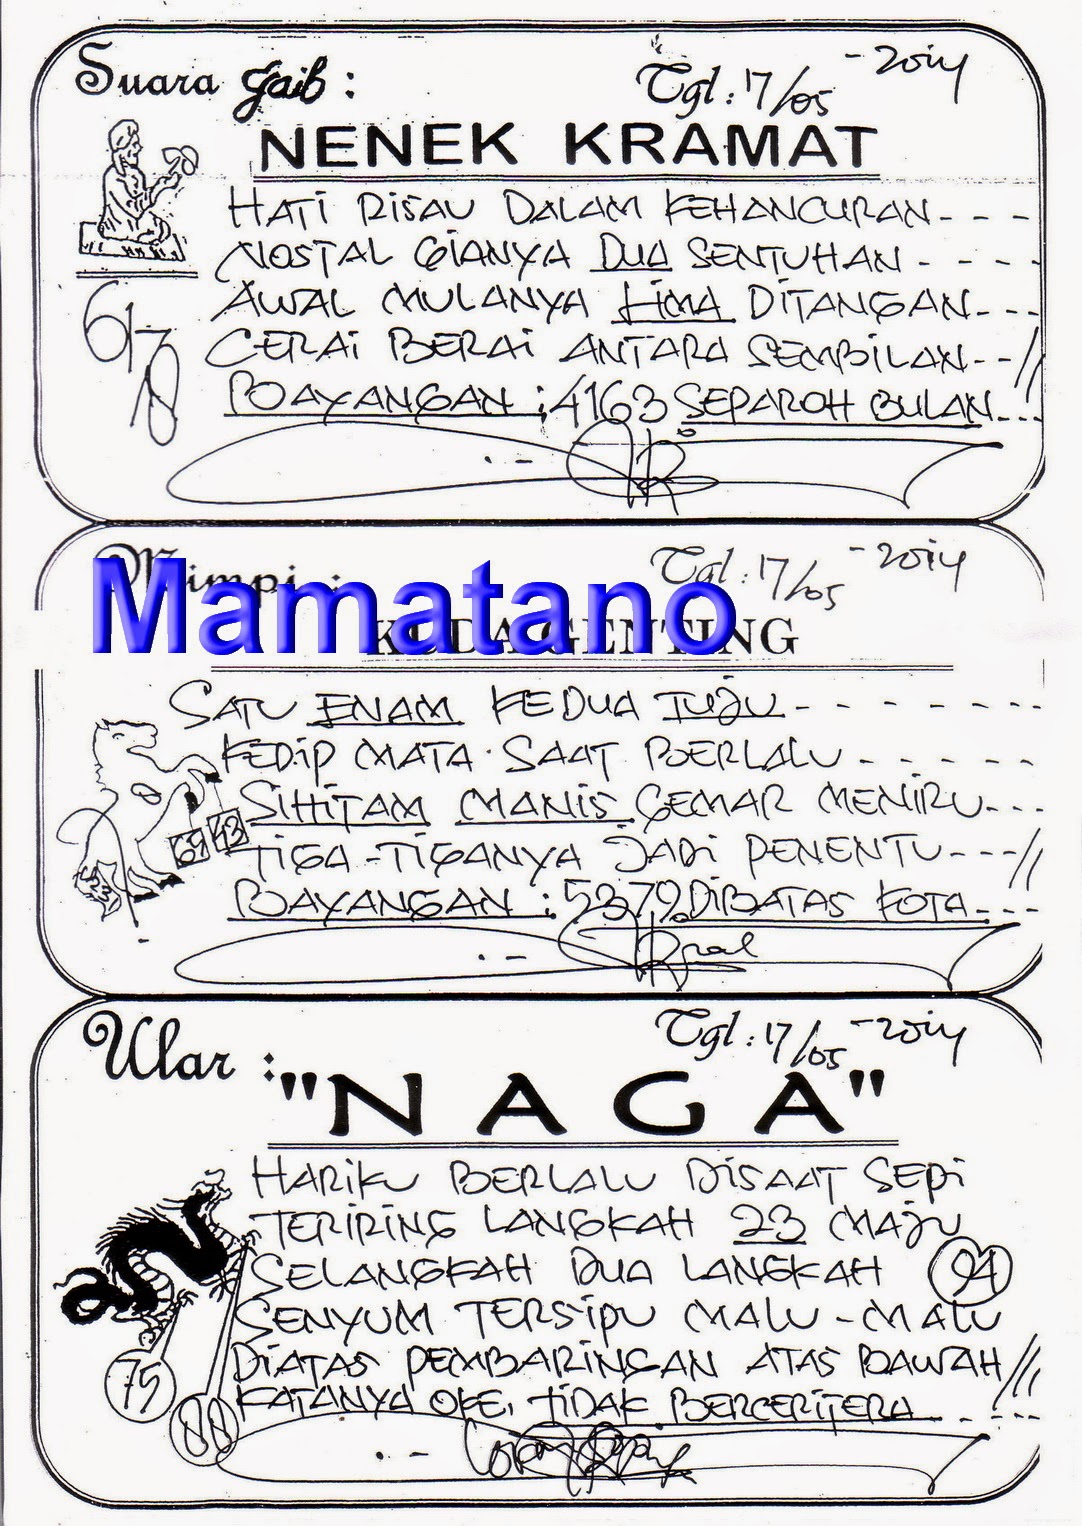 Suara Gaib :
Tgl : 17/05 - 2014
NENEK KRAMAT
HATI RISAU DALAM KEHANCURAN - - -
NOSTAL GIANYA DUA SENTUHAN - - - -
AWAL MULANYA LIMA DITANGAN - - -
CERAI BERAI ANTARA SEMBILAN - - //
BAYANGAN : 4163 SEPAROH BULAN - - -
61
78
Mimpi :
Tgl : 17/05 - 2014
Mamatano
KUDA GENTING
SATU ENAM KEDUA TUJU - - - - - - -
KEDIP MATA SAAT BERLALU - - - - -
SIHITAM MANIS GEMAR MENIRU - - -
69 43
TIGA - TIGANYA JADI PENENTU - - - //
BAYANGAN : 5379. DIBATAS KOTA - - -
Ular :
Tgl : 17/05 - 2014
"NAGA"
HARIKU BERLALU DISAAT SEPI
TERIRING LANGKAH 23 MAJU
SELANGKAH DUA LANGKAH
94
SENYUM TERSIPU MALU - MALU
DIATAS PEMBARINGAN ATAS BAWAH ///
75
KATANYA OKE, TIDAK BERCERITERA - - - -